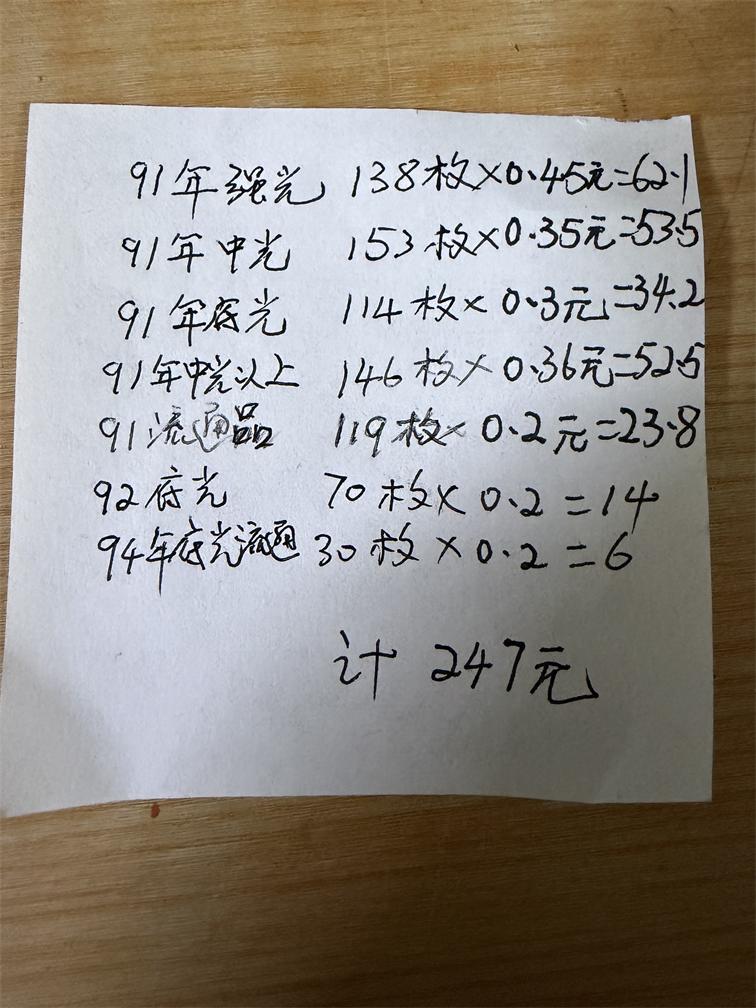 91年强光 138枚×0.45元=62.1
91年中光 153枚×0.35元=53.5
91年底光 114枚×0.3元=34.2
91年中光以上 146枚×0.36元=52.5
91流通品 119枚×0.2元=23.8
92底光 70枚×0.2=14
94年底光流通 30枚×0.2=6
计 247元